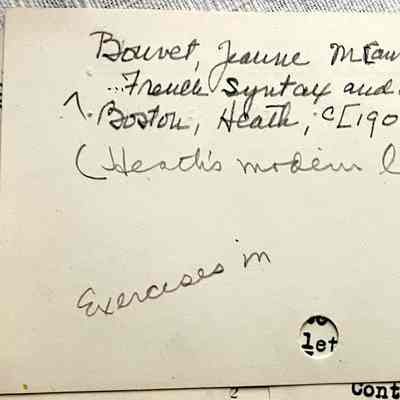 Bouvet, Jeanne M[au
...French Syntax and
^. Boston, Heath, c[190
(Heath's modern l
Exercises in
let
2
Cont